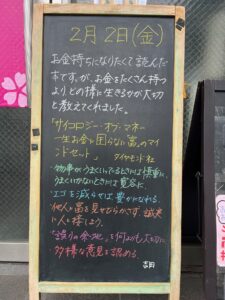 2月2日(金)
お金持ちになりたくて読んだ
本ですが、お金をたくさん持つ
より、どの様に生きるかが大切
と教えてくれました。
「サイコロジー・オブ・マネー
一生お金に困らない「富」のマイ
ンドセット」 ダイヤモンド社
・物事がうまくいってるときには慎重に、
うまくいかないときには寛容に。
・エゴを減らせば豊かになれる
他人に富を見せびらかさず 誠実
に人と接しよう。
・「誤りの余地」を何よりも大切に
多様な意見を認める。
吉田